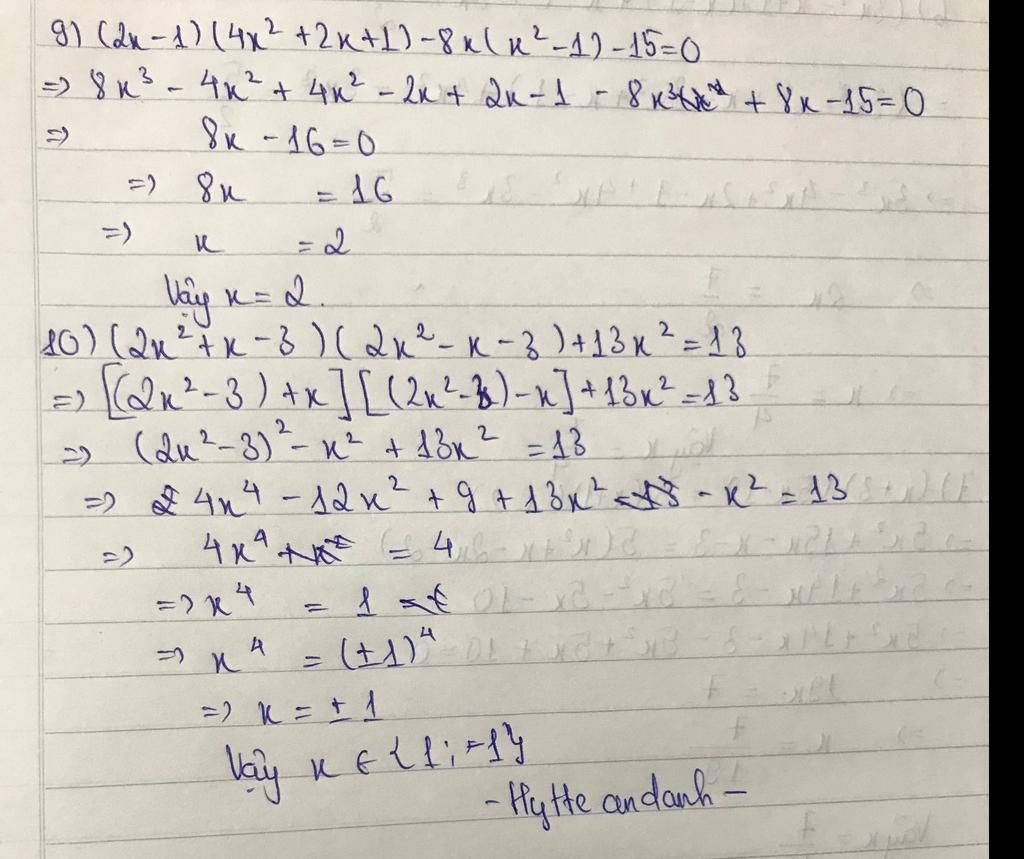 9) (2x-1)(4x² +2x+1) -8x(x²-1) -15=0
=> 8x³ - 4x² + 4x² - 2x + 2x - 1 - 8x³ + 8x -15=0
=> 8x -16=0
=> 8x = 16
=> x = 2
Vậy x = 2.
10) (2x²+x-3)(2x²-x-3)+13x²=13
=> [(2x²-3)+x][(2x²-3)-x]+13x²=13
=> (2x²-3)² - x² + 13x² =13
=> 4x⁴ - 12x² + 9 + 13x² - x² = 13
=> 4x⁴ = 4
=> x⁴ = 1
=> x⁴ = (±1)⁴
=> x = ±1
Vậy x ∈ {1; -1}
- Hytte andanh -